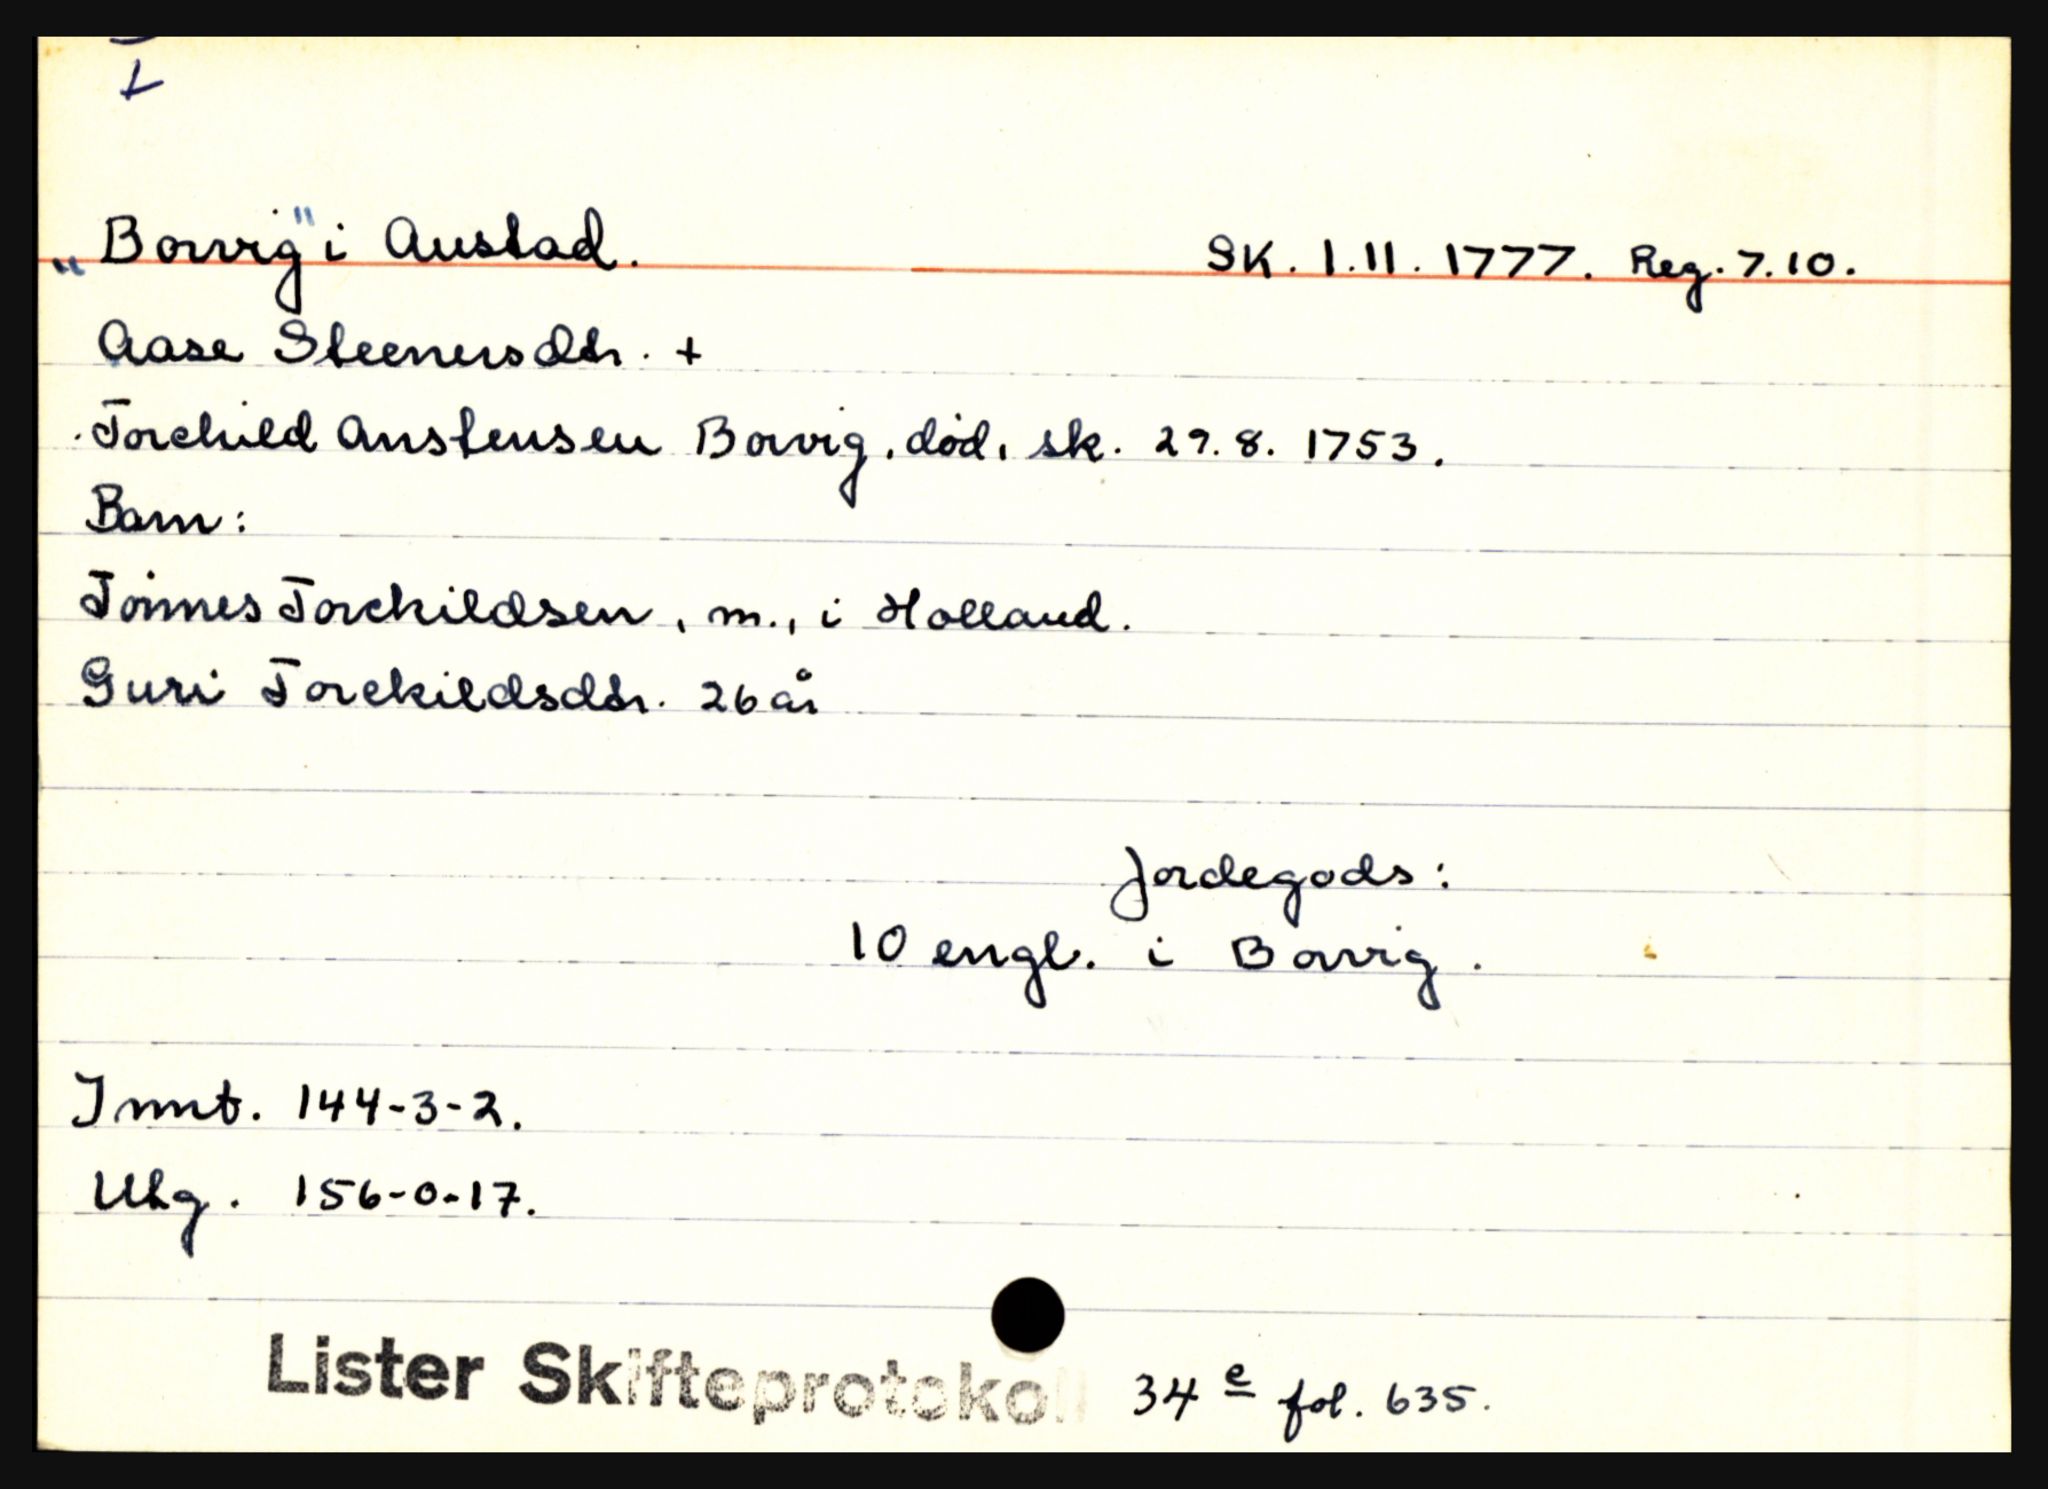 „Borvig" i Austad. SK. 1.11. 1777. Reg. 7.10.
Aase Steenersdtr. +
Torchild Anstensen Borvig, død, sk. 29.8. 1753.
Barn:
Tönnes Torchildsen, m., i Holland.
Guri Torchildsdtr. 26 år
Jordegods:
10 engl. i Borvig.
Innt. 144-3-2.
Utg. 156-0-17.
Lister Skifteprotokoll 34 e fol. 635.